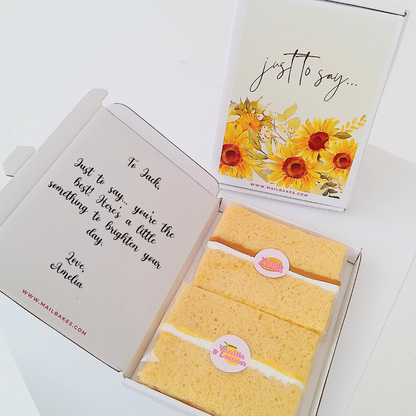 just to say...
WWW.MAILBAKES.COM
To Jack,
Just to say... you're the
best! Here's a little
something to brighten your
day.
Love,
Amelia
WWW.MAILBAKES.COM
Vanilla
& Lemon